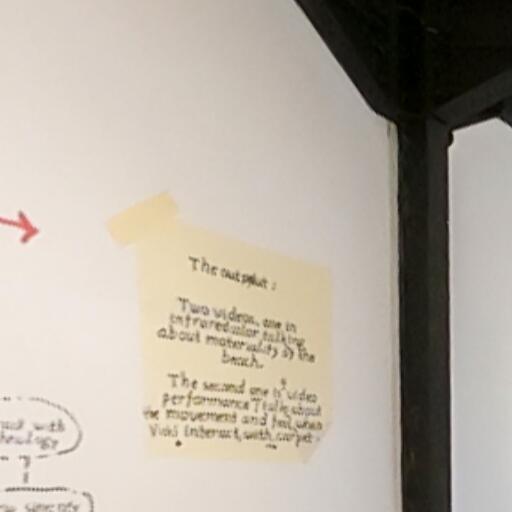 The output :
Two videos, one in
infraredcolor talking
about materiality of the
beach.
The second one is video
performance I talk about
the movement and feel when
Vicki interact with carpet.
with